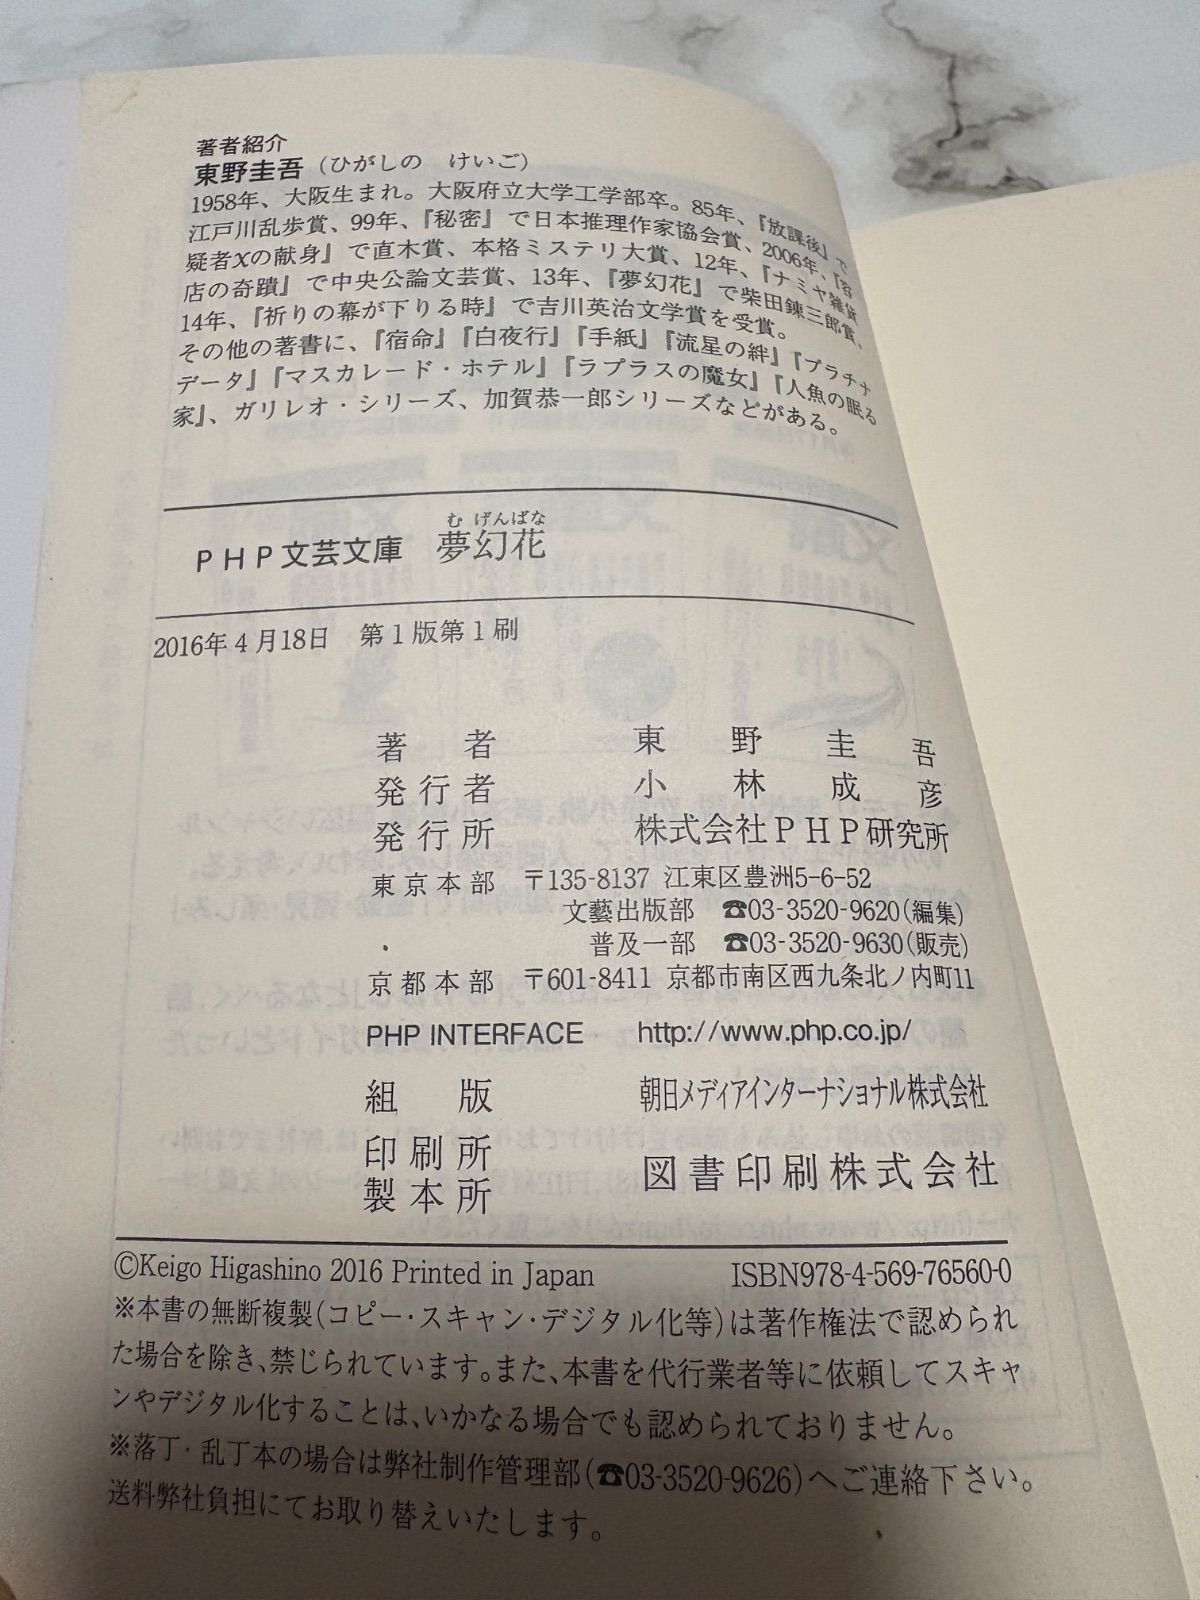 著者紹介
東野圭吾（ひがしの けいご）
1958年、大阪生まれ。大阪府立大学工学部卒。85年、『放課後』で
江戸川乱歩賞、99年、『秘密』で日本推理作家協会賞、2006年、『容
疑者Xの献身』で直木賞、本格ミステリ大賞、12年、『ナミヤ雑貨
店の奇蹟』で中央公論文芸賞、13年、『夢幻花』で柴田錬三郎賞、
14年、『祈りの幕が下りる時』で吉川英治文学賞を受賞。
その他の著書に、『宿命』『白夜行』『手紙』『流星の絆』『プラチナ
データ』『マスカレード・ホテル』『ラプラスの魔女』『人魚の眠る
家』、ガリレオ・シリーズ、加賀恭一郎シリーズなどがある。
む げんばな
PHP文芸文庫 夢幻花
2016年4月18日 第1版第1刷
著者 東野圭吾
発行者 小林成彦
発行所 株式会社PHP研究所
東京本部 〒135-8137 江東区豊洲5-6-52
文藝出版部 ☎03-3520-9620(編集)
普及一部 ☎03-3520-9630(販売)
京都本部 〒601-8411 京都市南区西九条北ノ内町11
PHP INTERFACE http://www.php.co.jp/
組版 朝日メディアインターナショナル株式会社
印刷所
製本所 図書印刷株式会社
©Keigo Higashino 2016 Printed in Japan ISBN978-4-569-76560-0
※本書の無断複製(コピー・スキャン・デジタル化等)は著作権法で認められ
た場合を除き、禁じられています。また、本書を代行業者等に依頼してスキャ
ンやデジタル化することは、いかなる場合でも認められておりません。
※落丁・乱丁本の場合は弊社制作管理部(☎03-3520-9626)へご連絡下さい。
送料弊社負担にてお取り替えいたします。